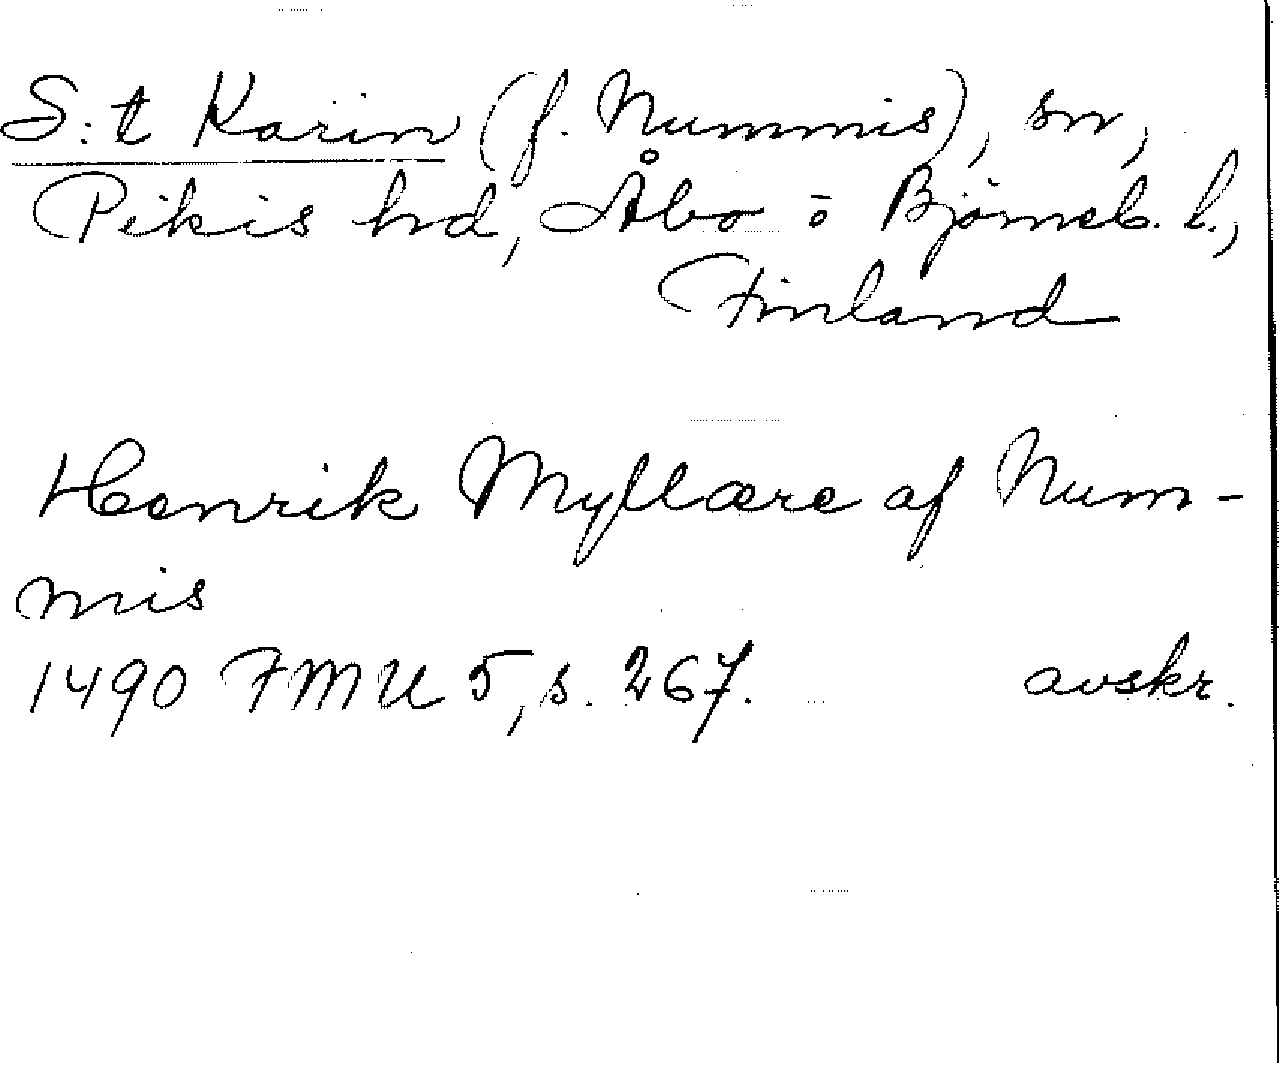 S:t Karin (f. Nummis), sn,
Pikis hd, Åbo o Björneb. l.,
Finland
Henrik Myllære af Num-
mis
1490 FMU 5, s. 267. avskr.